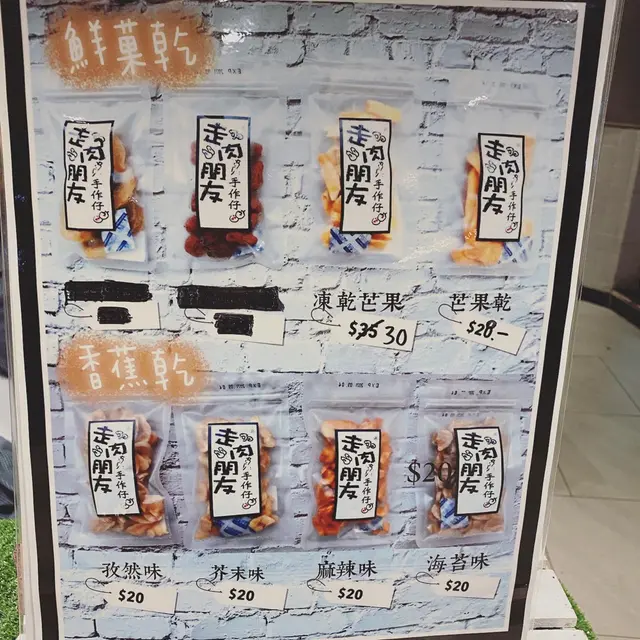 鮮菓乾
走肉朋友
手作仔
走肉朋友
手作仔
走肉朋友
手作仔
走肉朋友
手作仔
凍乾芒果
$35 30
芒果乾
$28.-
香蕉乾
走肉朋友
手作仔
走肉朋友
手作仔
走肉朋友
手作仔
走肉朋友
手作仔
$20
孜然味
$20
芥末味
$20
麻辣味
$20
海苔味
$20